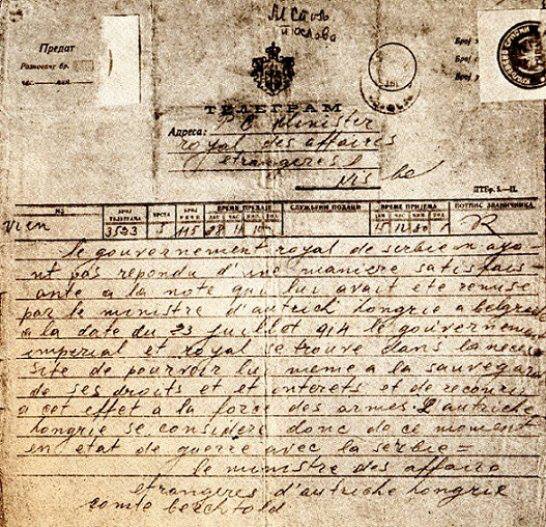 Предат
ТЕЛЕГРАМ
Адреса:
Minister
royal des affaires
etrangeres
Nis
ВРЕМЕ ПРЕДАЈЕ
СЛУЖБЕНИ ПОДАЦИ
ВРЕМЕ ПРИЈЕМА
ПОТПИС ЗВАНИЧНИКА
3523 5
R
le gouvernement royal de serbie n ayo-
nt pas repondu d'une maniere satisfais-
ante a la note qui lui avait ete remise
par le ministre d'autrich hongrie a belgrade
a la date du 23 juillet 914 le gouvernement
imperial et royal se trouve dans la neces
site de pourvoir lui meme a la sauvegarde
de ses droits et et interets et de recourir
a cet effet a la force des armes. L'autriche
hongrie se considere donc de ce moment
en etat de guerre avec la serbie =
le ministre des affaire
etrangeres d'autriche hongrie
comte berchtold